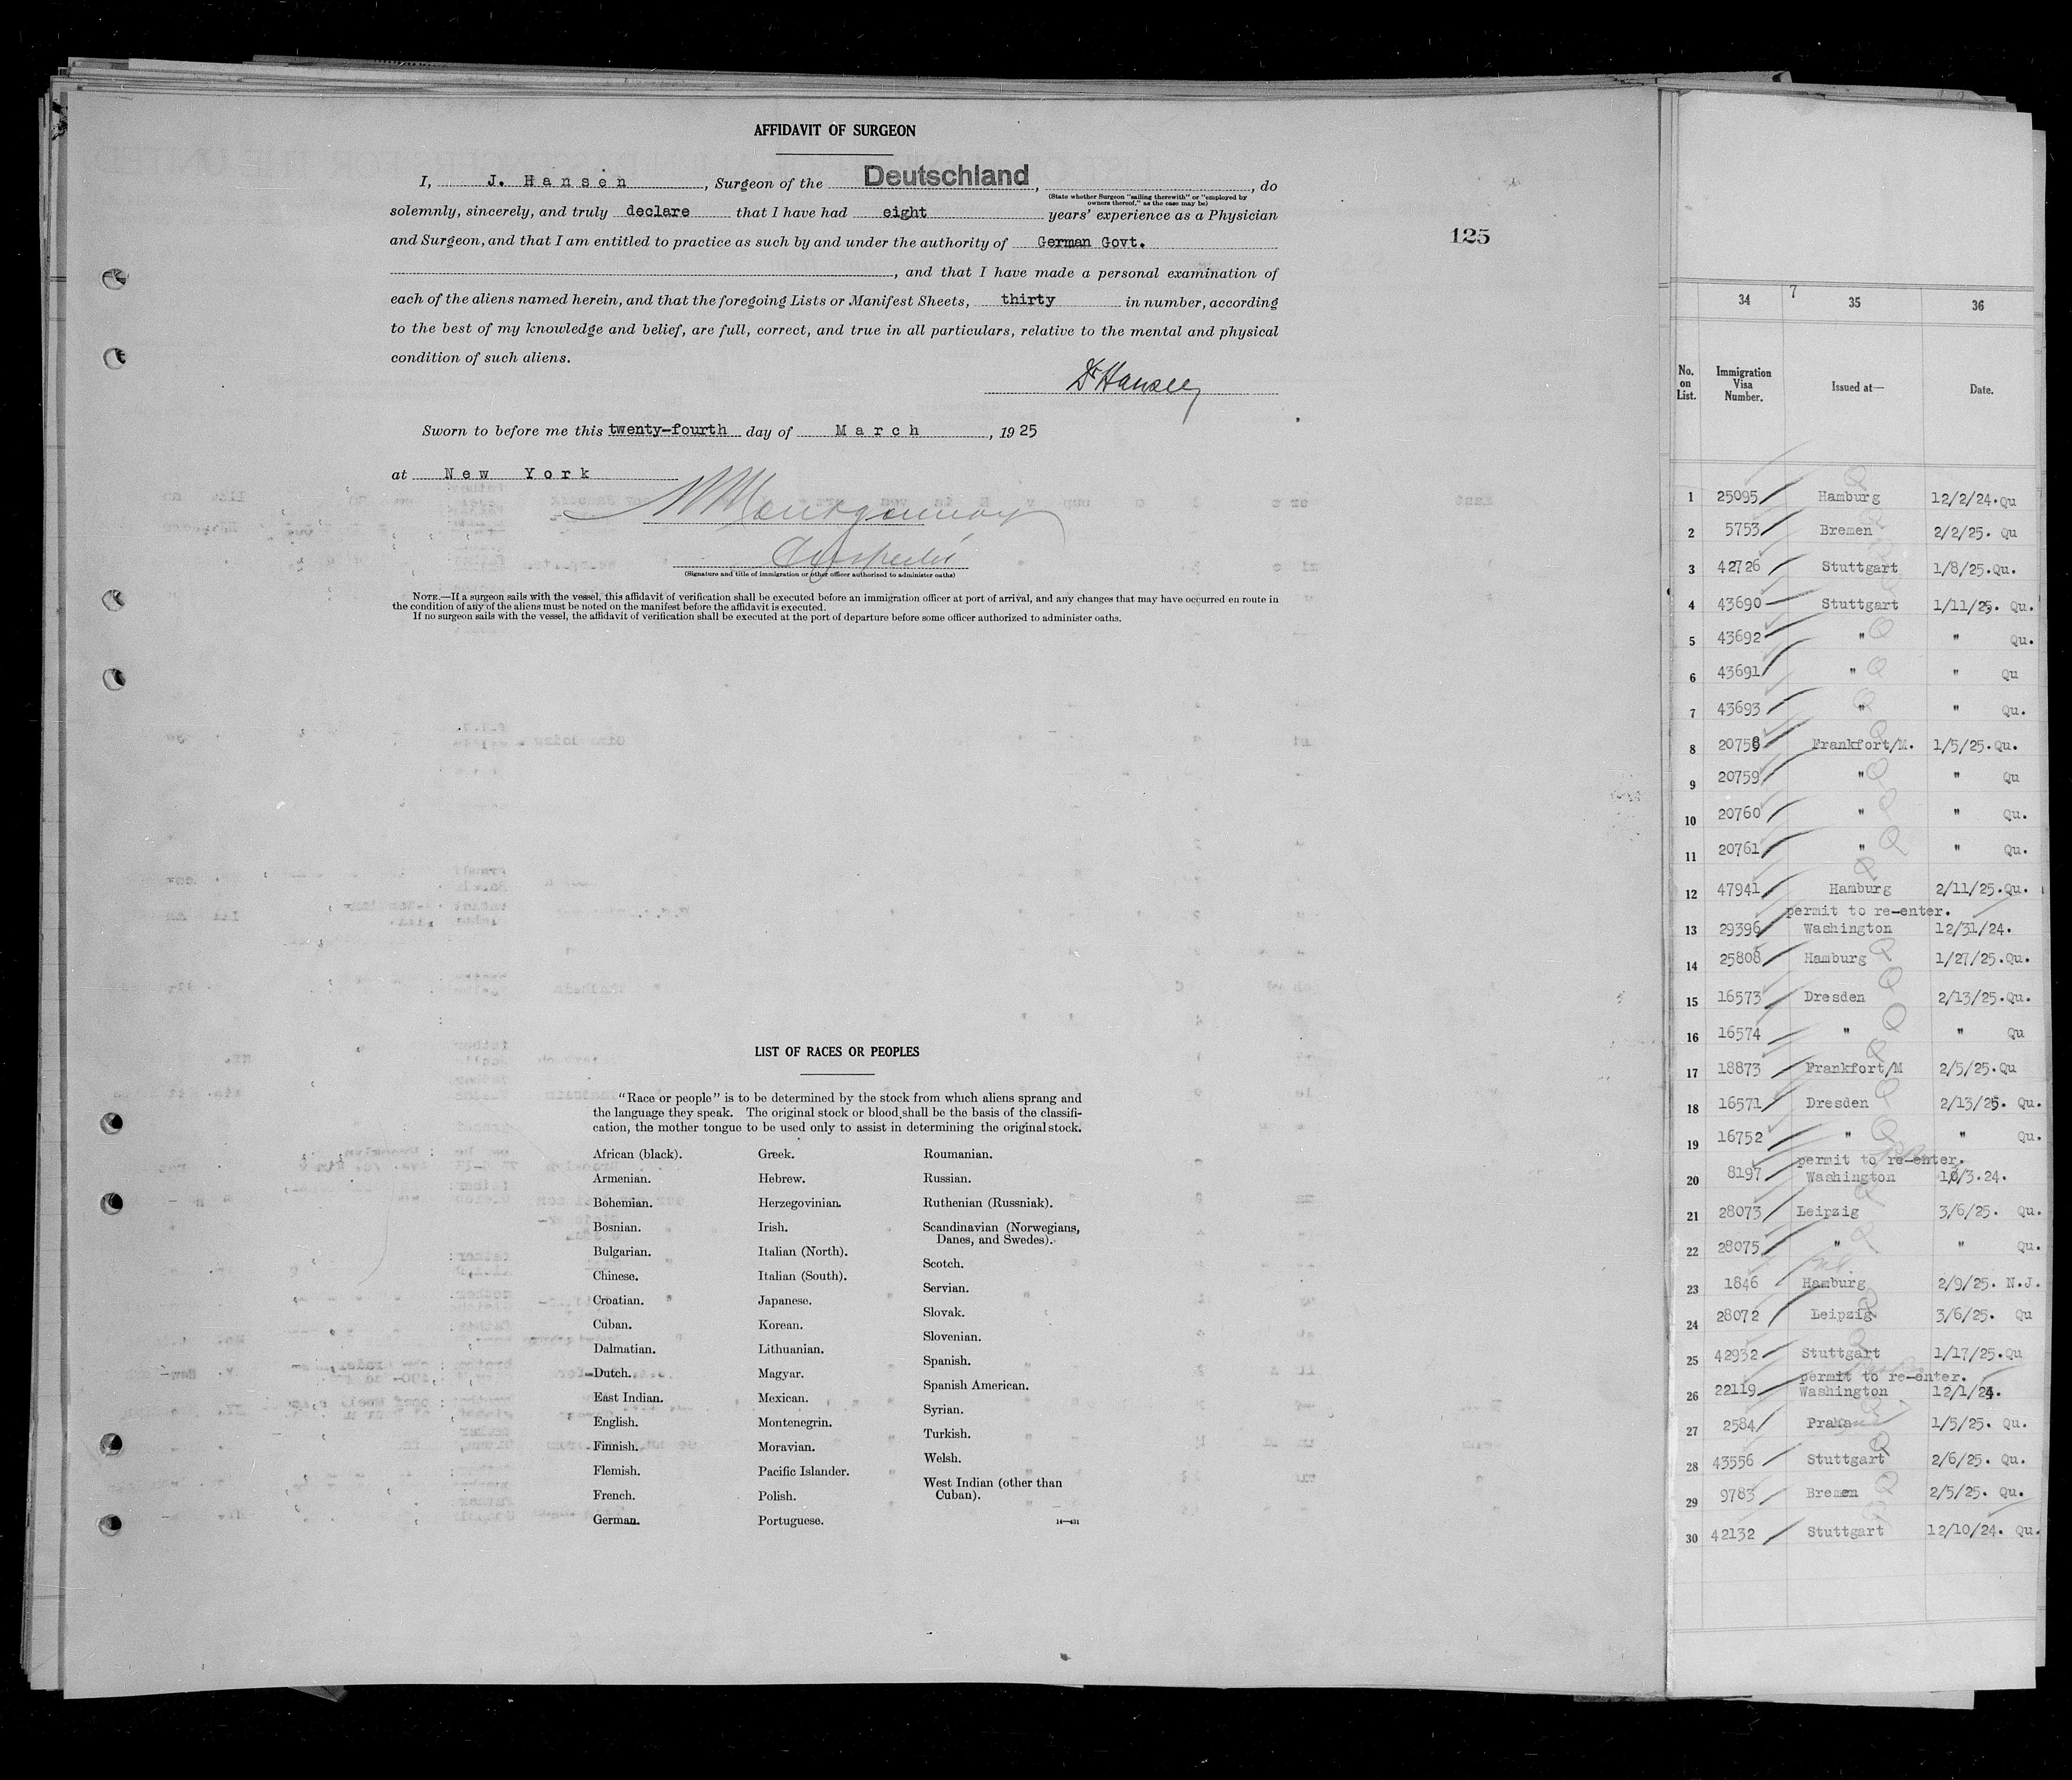 AFFIDAVIT OF SURGEON
I, J. Hansen, Surgeon of the Deutschland, , do
(State whether Surgeon "sailing therewith" or "employed by
owners thereof," as the case may be)
solemnly, sincerely, and truly declare that I have had eight years' experience as a Physician
and Surgeon, and that I am entitled to practice as such by and under the authority of German Govt.
, and that I have made a personal examination of
each of the aliens named herein, and that the foregoing Lists or Manifest Sheets, thirty in number, according
to the best of my knowledge and belief, are full, correct, and true in all particulars, relative to the mental and physical
condition of such aliens.
Dr Hansen
Sworn to before me this twenty-fourth day of March, 1925
at New York
Montgomery
Inspector
(Signature and title of immigration or other officer authorized to administer oaths)
NOTE.—If a surgeon sails with the vessel, this affidavit of verification shall be executed before an immigration officer at port of arrival, and any changes that may have occurred en route in
the condition of any of the aliens must be noted on the manifest before the affidavit is executed.
If no surgeon sails with the vessel, the affidavit of verification shall be executed at the port of departure before some officer authorized to administer oaths.
125
LIST OF RACES OR PEOPLES
"Race or people" is to be determined by the stock from which aliens sprang and
the language they speak. The original stock or blood shall be the basis of the classifi-
cation, the mother tongue to be used only to assist in determining the original stock.
African (black).
Armenian.
Bohemian.
Bosnian.
Bulgarian.
Chinese.
Croatian.
Cuban.
Dalmatian.
Dutch.
East Indian.
English.
Finnish.
Flemish.
French.
German.
Greek.
Hebrew.
Herzegovinian.
Irish.
Italian (North).
Italian (South).
Japanese.
Korean.
Lithuanian.
Magyar.
Mexican.
Montenegrin.
Moravian.
Pacific Islander.
Polish.
Portuguese.
Roumanian.
Russian.
Ruthenian (Russniak).
Scandinavian (Norwegians,
Danes, and Swedes).
Scotch.
Servian.
Slovak.
Slovenian.
Spanish.
Spanish American.
Syrian.
Turkish.
Welsh.
West Indian (other than
Cuban).
14—431
34 7 35 36
No. on List. Immigration Visa Number. Issued at— Date.
1 25095 Hamburg 12/2/24. Qu
2 5753 Bremen 2/2/25. Qu
3 42726 Stuttgart 1/8/25. Qu.
4 43690 Stuttgart 1/11/25. Qu.
5 43692 " " Qu.
6 43691 " " Qu
7 43693 " " Qu.
8 20758 Frankfort/M. 1/5/25. Qu.
9 20759 " " Qu
10 20760 " " Qu.
11 20761 " " Qu.
12 47941 Hamburg 2/11/25. Qu.
permit to re-enter.
13 29396 Washington 12/31/24.
14 25808 Hamburg 1/27/25. Qu.
15 16573 Dresden 2/13/25. Qu.
16 16574 " " Qu
17 18873 Frankfort/M 2/5/25. Qu
18 16571 Dresden 2/13/25. Qu.
19 16752 " " Qu.
permit to re-enter.
20 8197 Washington 10/3.24.
21 28073 Leipzig 3/6/25. Qu.
22 28075 " " Qu.
23 1846 Hamburg 2/9/25. N.J.
24 28072 Leipzig 3/6/25. Qu
25 42932 Stuttgart 1/17/25. Qu
permit to re-enter.
26 22119 Washington 12/1/24.
27 2584 Praha 1/5/25. Qu.
28 43556 Stuttgart 2/6/25. Qu.
29 9783 Bremen 2/5/25. Qu.
30 42132 Stuttgart 12/10/24. Qu.